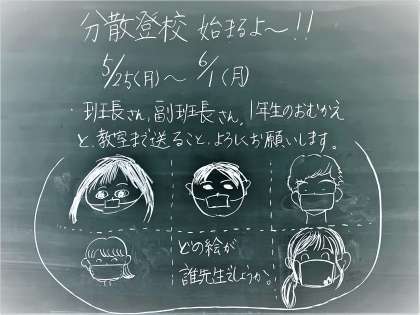 分散登校 始まるよ～!!
5/25(月)～ 6/1(月)
・班長さん,副班長さん,1年生のおむかえ
と,教室まで送ること,よろしくお願いします。
どの絵が
誰先生でしょうか。